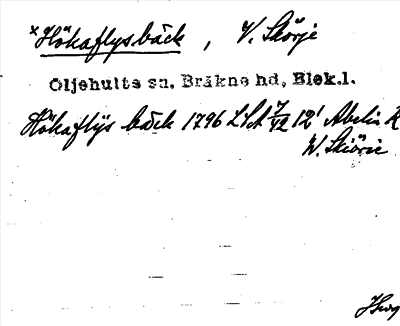 *Hökaflysbäck, V. Skörje
Öljehults sn, Bräkne hd, Blek.l.
Hökaflÿs bäck 1796 LSA 7/12 12¹ Abelin K
W. Skiörie